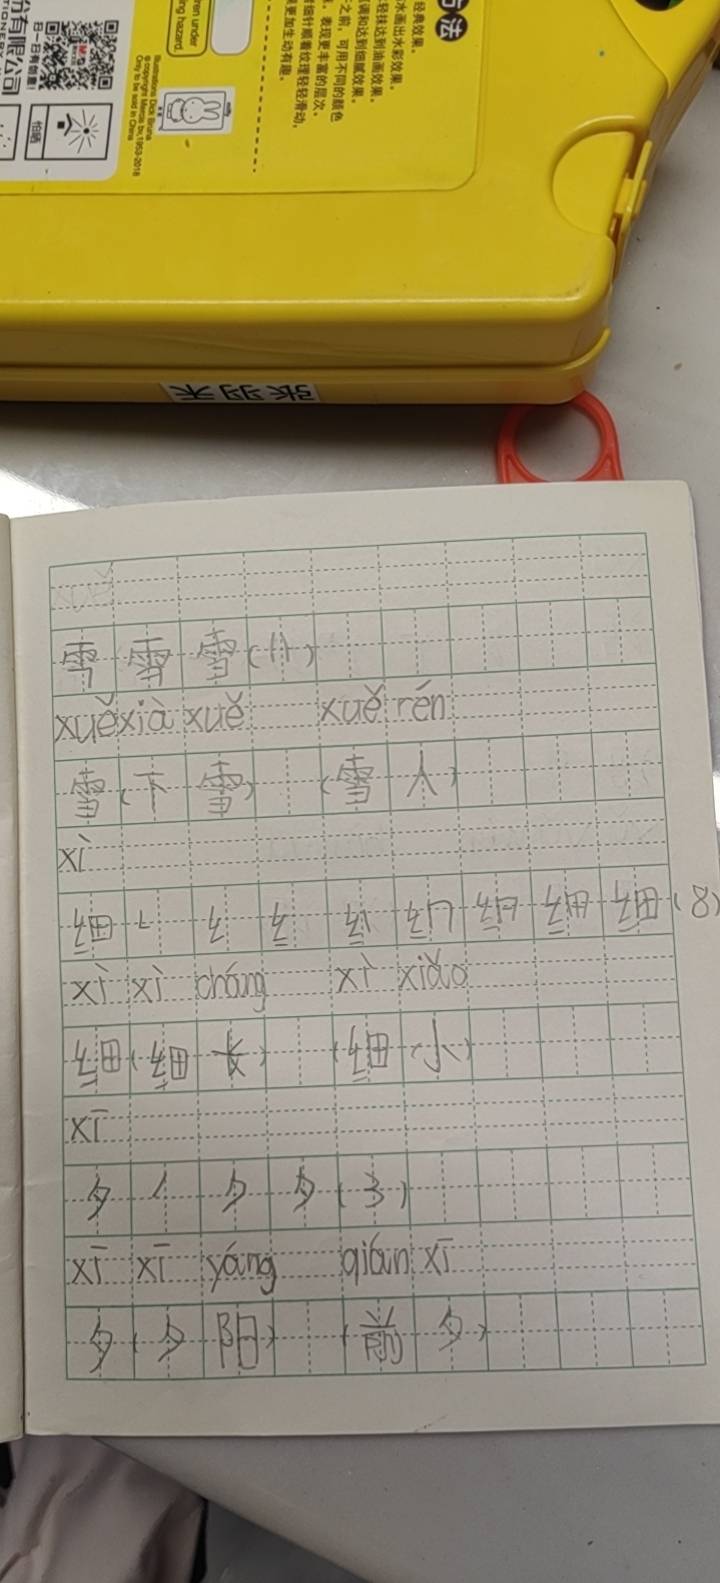 方法
经典效果。
水画出水彩效果。
轻抹达到油画效果。
调和达到细腻效果。
之前，可用不同的颜色
，表现更丰富的层次。
细针顺着纹理轻轻滑动，
更加生动有趣。
ren under
ing hazard.
miffy
Illustrations Dick Bruna
© copyright Mercis bv, 1953-2018
Only to be sold in China
怕晒
扫一扫有倒量!
份有限公司
张羽禾
雪 雪 雪 (11)
xuě xià xuě xuě rén
雪 (下 雪) (雪 人)
xì
细 (8)
xì xì cháng xì xiǎo
细 (细 长) (细 小)
xī
夕 丿 ク 夕 (3)
xī xī yáng qián xī
夕 (夕 阳) (前 夕)